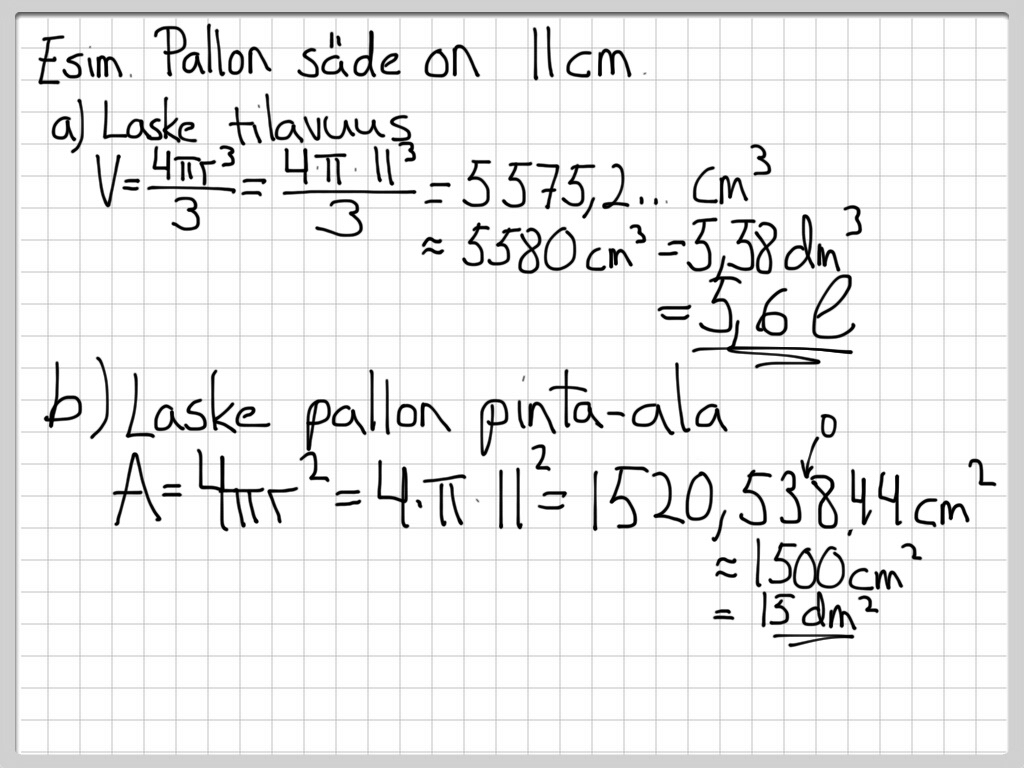 Esim. Pallon säde on 11 cm.
a) Laske tilavuus
V = 4πr³/3 = 4·π·11³/3 = 5575,2... cm³
≈ 5580 cm³ = 5,58 dm³
= 5,6 l
b) Laske pallon pinta-ala
0
A = 4πr² = 4·π·11² = 1520,53844 cm²
≈ 1500 cm²
= 15 dm²